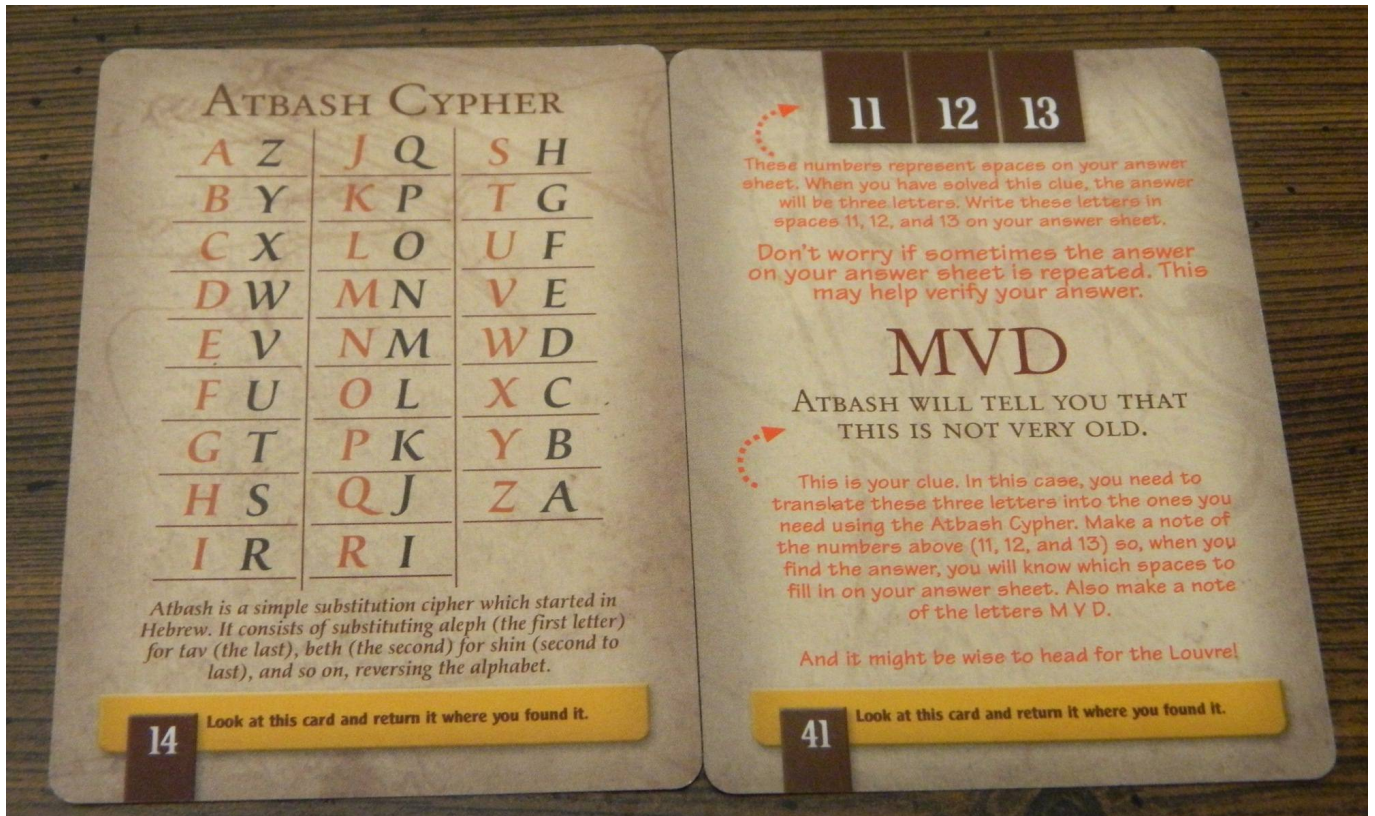 ATBASH CYPHER
A Z J Q S H
B Y K P T G
C X L O U F
D W M N V E
E V N M W D
F U O L X C
G T P K Y B
H S Q J Z A
I R R I
Atbash is a simple substitution cipher which started in
Hebrew. It consists of substituting aleph (the first letter)
for tav (the last), beth (the second) for shin (second to
last), and so on, reversing the alphabet.
Look at this card and return it where you found it.
14
11 12 13
These numbers represent spaces on your answer
sheet. When you have solved this clue, the answer
will be three letters. Write these letters in
spaces 11, 12, and 13 on your answer sheet.
Don't worry if sometimes the answer
on your answer sheet is repeated. This
may help verify your answer.
MVD
ATBASH WILL TELL YOU THAT
THIS IS NOT VERY OLD.
This is your clue. In this case, you need to
translate these three letters into the ones you
need using the Atbash Cypher. Make a note of
the numbers above (11, 12, and 13) so, when you
find the answer, you will know which spaces to
fill in on your answer sheet. Also make a note
of the letters M V D.
And it might be wise to head for the Louvre!
Look at this card and return it where you found it.
41